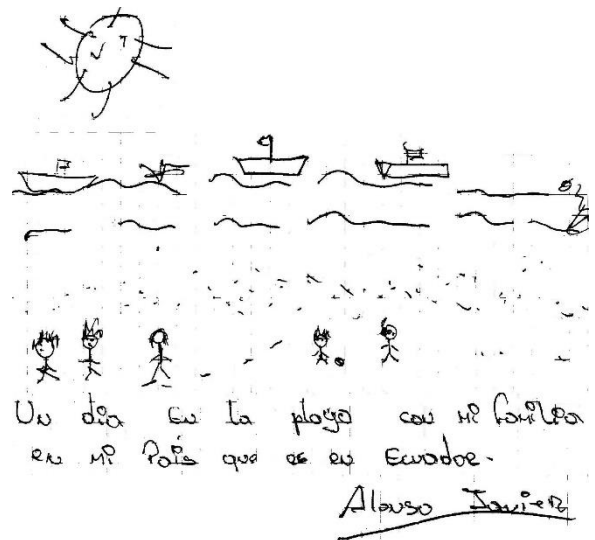 Un dia En la playa con mi familia
en mi País que es en Ecuador.
Alonso Javier